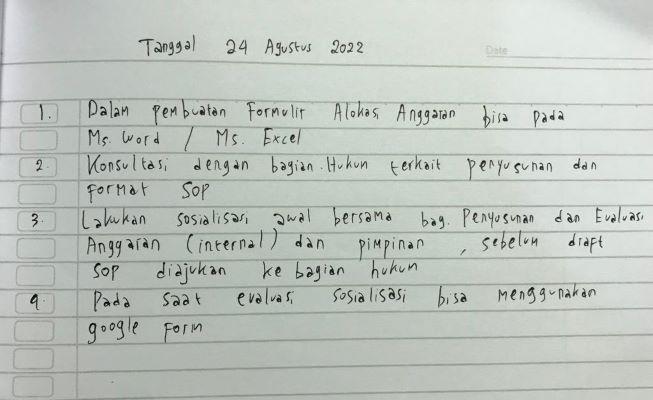 Tanggal 24 Agustus 2022
Date
1. Dalam pembuatan Formulir Alokasi Anggaran bisa pada
Ms. Word / Ms. Excel
2. Konsultasi dengan bagian Hukum terkait penyusunan dan
format SOP
3. Lakukan sosialisasi awal bersama bag. Penyusunan dan Evaluasi
Anggaran (internal) dan pimpinan, sebelum draft
SOP diajukan ke bagian hukum
4. Pada saat evaluasi sosialisasi bisa menggunakan
google Form